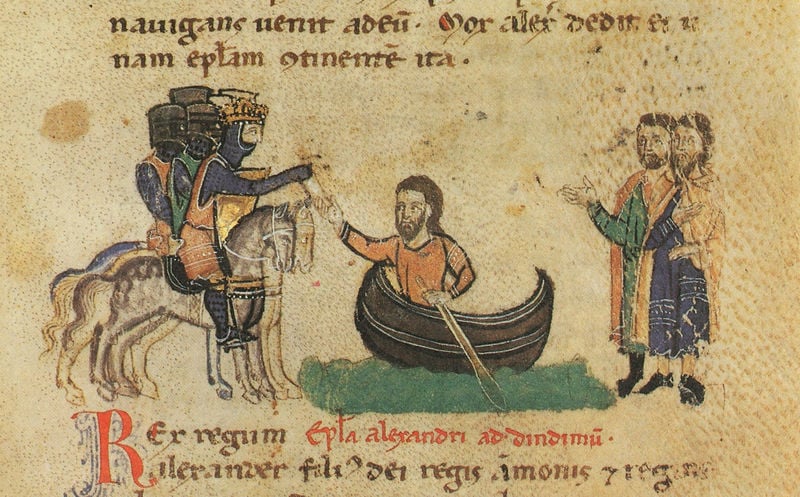 nauigans uenit ad eū. Mox alexʼ dedit ei u
nam epl̄am ꝯtinentē ita.
Rex regum Epl̄a alexandri ad dindimū.
Alexander filiꝰ dei regis amonis ⁊ regine